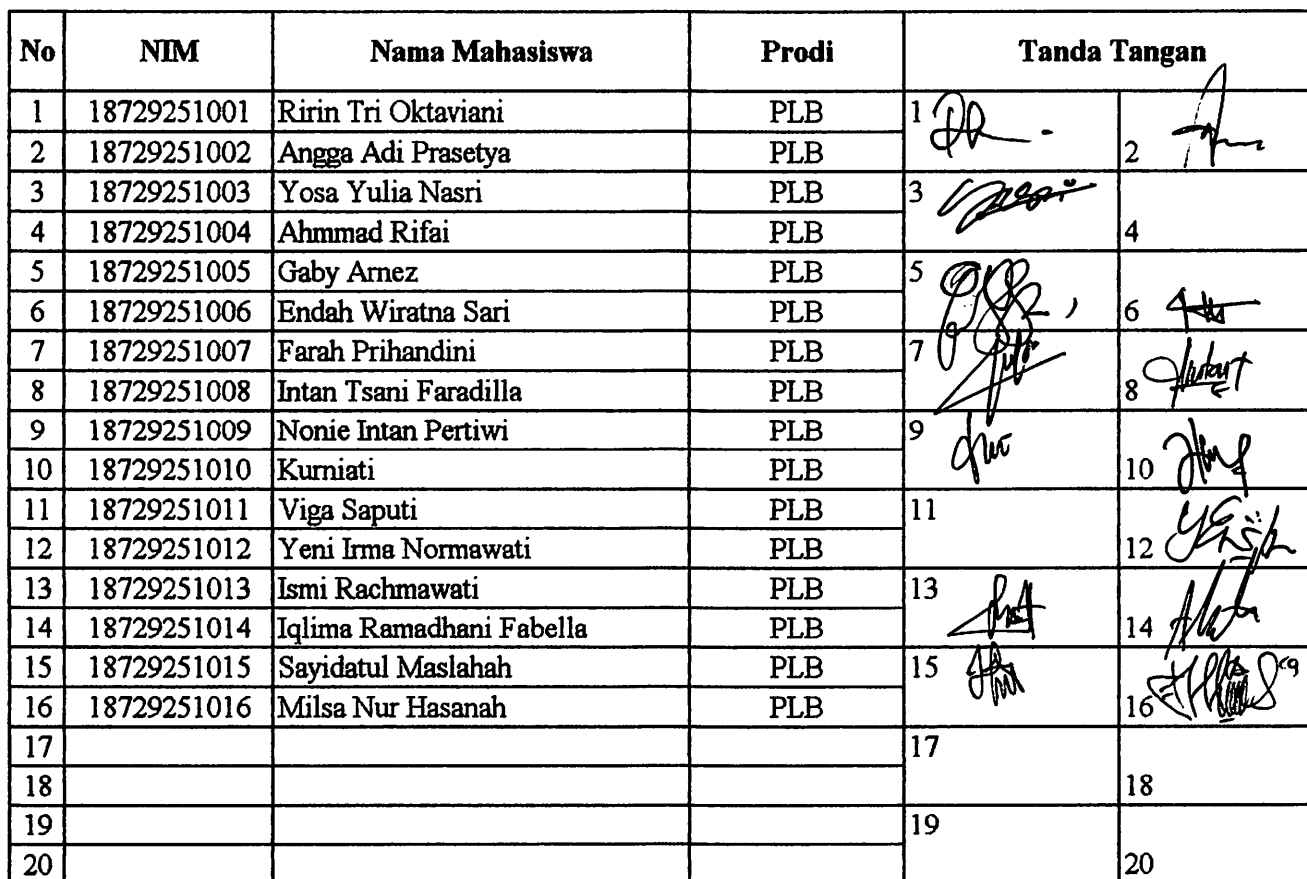 No NIM Nama Mahasiswa Prodi Tanda Tangan
1 18729251001 Ririn Tri Oktaviani PLB 1
2 18729251002 Angga Adi Prasetya PLB 2
3 18729251003 Yosa Yulia Nasri PLB 3
4 18729251004 Ahmmad Rifai PLB 4
5 18729251005 Gaby Arnez PLB 5
6 18729251006 Endah Wiratna Sari PLB 6
7 18729251007 Farah Prihandini PLB 7
8 18729251008 Intan Tsani Faradilla PLB 8
9 18729251009 Nonie Intan Pertiwi PLB 9
10 18729251010 Kurniati PLB 10
11 18729251011 Viga Saputi PLB 11
12 18729251012 Yeni Irma Normawati PLB 12
13 18729251013 Ismi Rachmawati PLB 13
14 18729251014 Iqlima Ramadhani Fabella PLB 14
15 18729251015 Sayidatul Maslahah PLB 15
16 18729251016 Milsa Nur Hasanah PLB 16
17 17
18 18
19 19
20 20